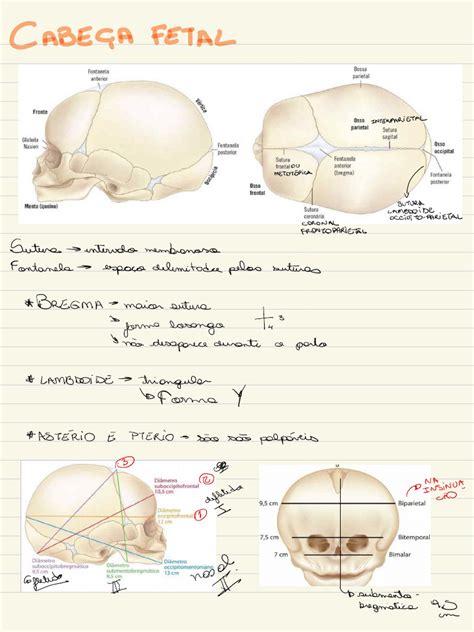 CABEÇA FETAL
Fontanela
anterior
Fronte
Vértice
Glabela
Nasien
Fontanela
posterior
Occipício
Menta (queixo)
Bossa
parietal
Osso
parietal
INTERPARIETAL
Sutura
sagital
Osso
occipital
Sutura
frontal
OU
METOTÓPICA
Fontanela
anterior
(bregma)
Fontanela
posterior
Osso
frontal
Sutura
coronária
CORONAL
FRONTOPARIETAL
SUTURA
LAMBDOIDE
OCCIPTO-PARIETAL
Sutura → intervalo membranoso
Fontanela → espaço delimitados pelas suturas
* BREGMA → maior sutura
↳ forma losango
3
4
↳ não desaparece durante o parto
* LAMBDOIDE → triangular
↳ Forma Y
* ASTÉRIO E PTERIO → são palpáveis
3
Diâmetro
suboccipitofrontal
10,5 cm
2
Diâmetro
occipitofrontal
12 cm
1
defletida
I
Diâmetro
suboccipitobregmático
9,5 cm
Diâmetro
submentobregmático
9,5 cm
Diâmetro
occipitomentoniano
13 cm
III
II
M
9,5 cm
Biparietal
NA
INSINUA
CÃO
7,5 cm
Bitemporal
7 cm
Bimalar
submento-
bregmático
9,5
cm